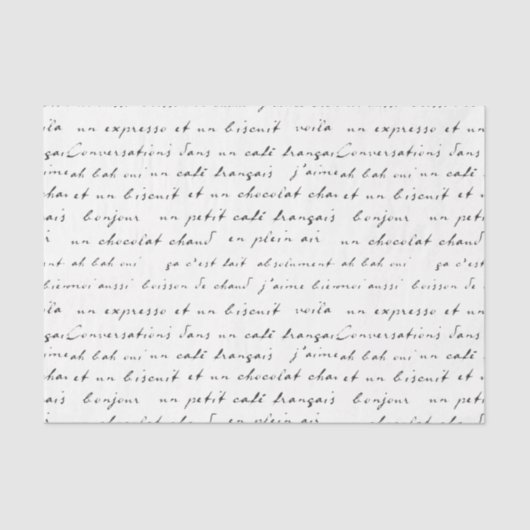 ila un expresso et un biscuit voila un expresso et un
çaiConversations dans un café françaiConversations dans
aimeah bah oui un café français j'aimeah bah oui un café
chauet un biscuit et un chocolat chauet un biscuit et u
ais bonjour un petit café français bonjour un peti
un chocolat chaud en plein air un chocolat chaud
ent ah bah oui ça c'est fait absolument ah bah oui ça c'est
bièremoi aussi boisson de chaud j'aime bièremoi aussi boisson
ila un expresso et un biscuit voila un expresso et un
çaiConversations dans un café françaiConversations dans
aimeah bah oui un café français j'aimeah bah oui un café
chauet un biscuit et un chocolat chauet un biscuit et u
ais bonjour un petit café français bonjour un peti
un chocolat chaud en plein air un chocolat chaud